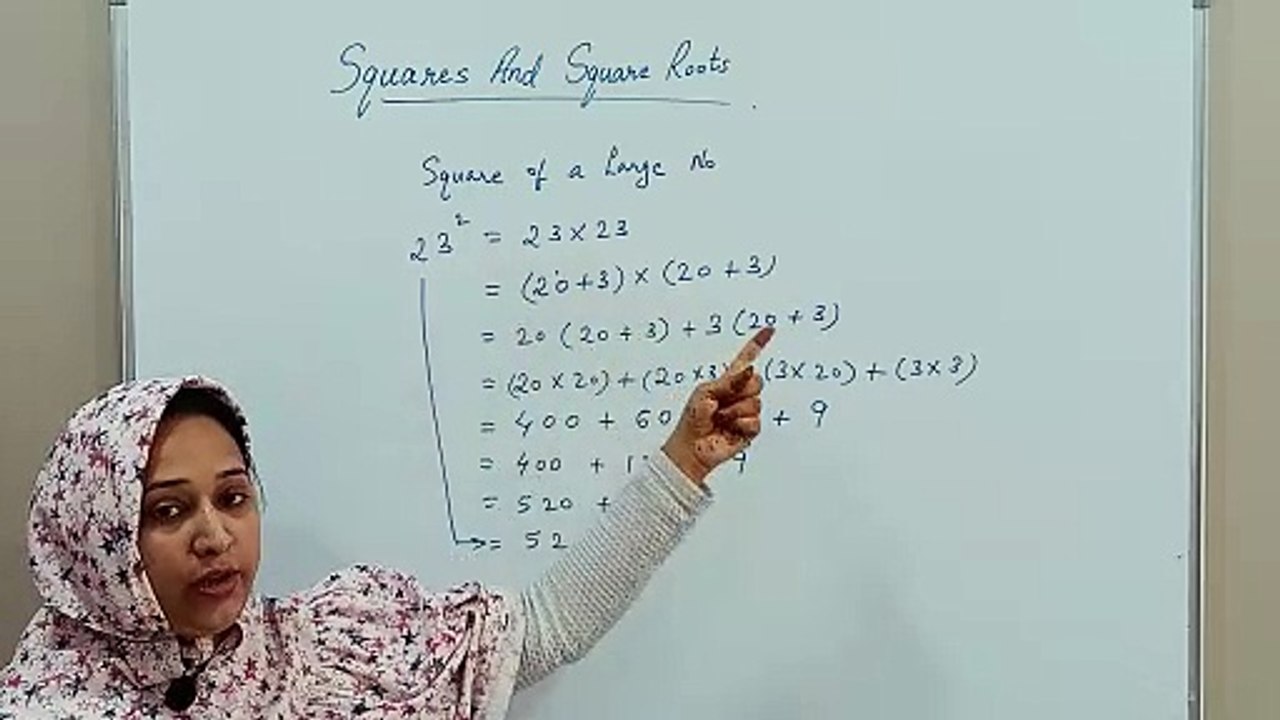 Squares And Square Roots
Square of a Large No
23² = 23×23
= (20+3) × (20+3)
= 20 (20+3) + 3 (20+3)
= (20×20) + (20×3) (3×20) + (3×3)
= 400 + 60 + 9
= 400 + 9
= 520 +
= 52